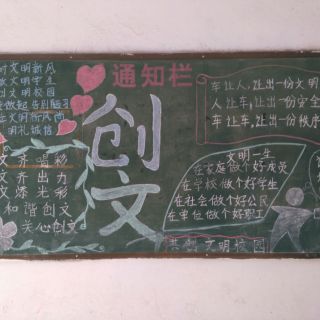 通知栏
时文明新风
做文明学生
创文明校园
做起 告别陋习
文明新风尚
明礼诚信
创文
文齐喝彩
文齐出力
文添光彩
和谐创文
关心创文
车让人,让出一份文明
人让车,让出一份安全
车让车,让出一份秩序
文明一生
在家庭做个好成员
在学校做个好学生
在社会做个好公民
在单位做个好职工
共创文明校园